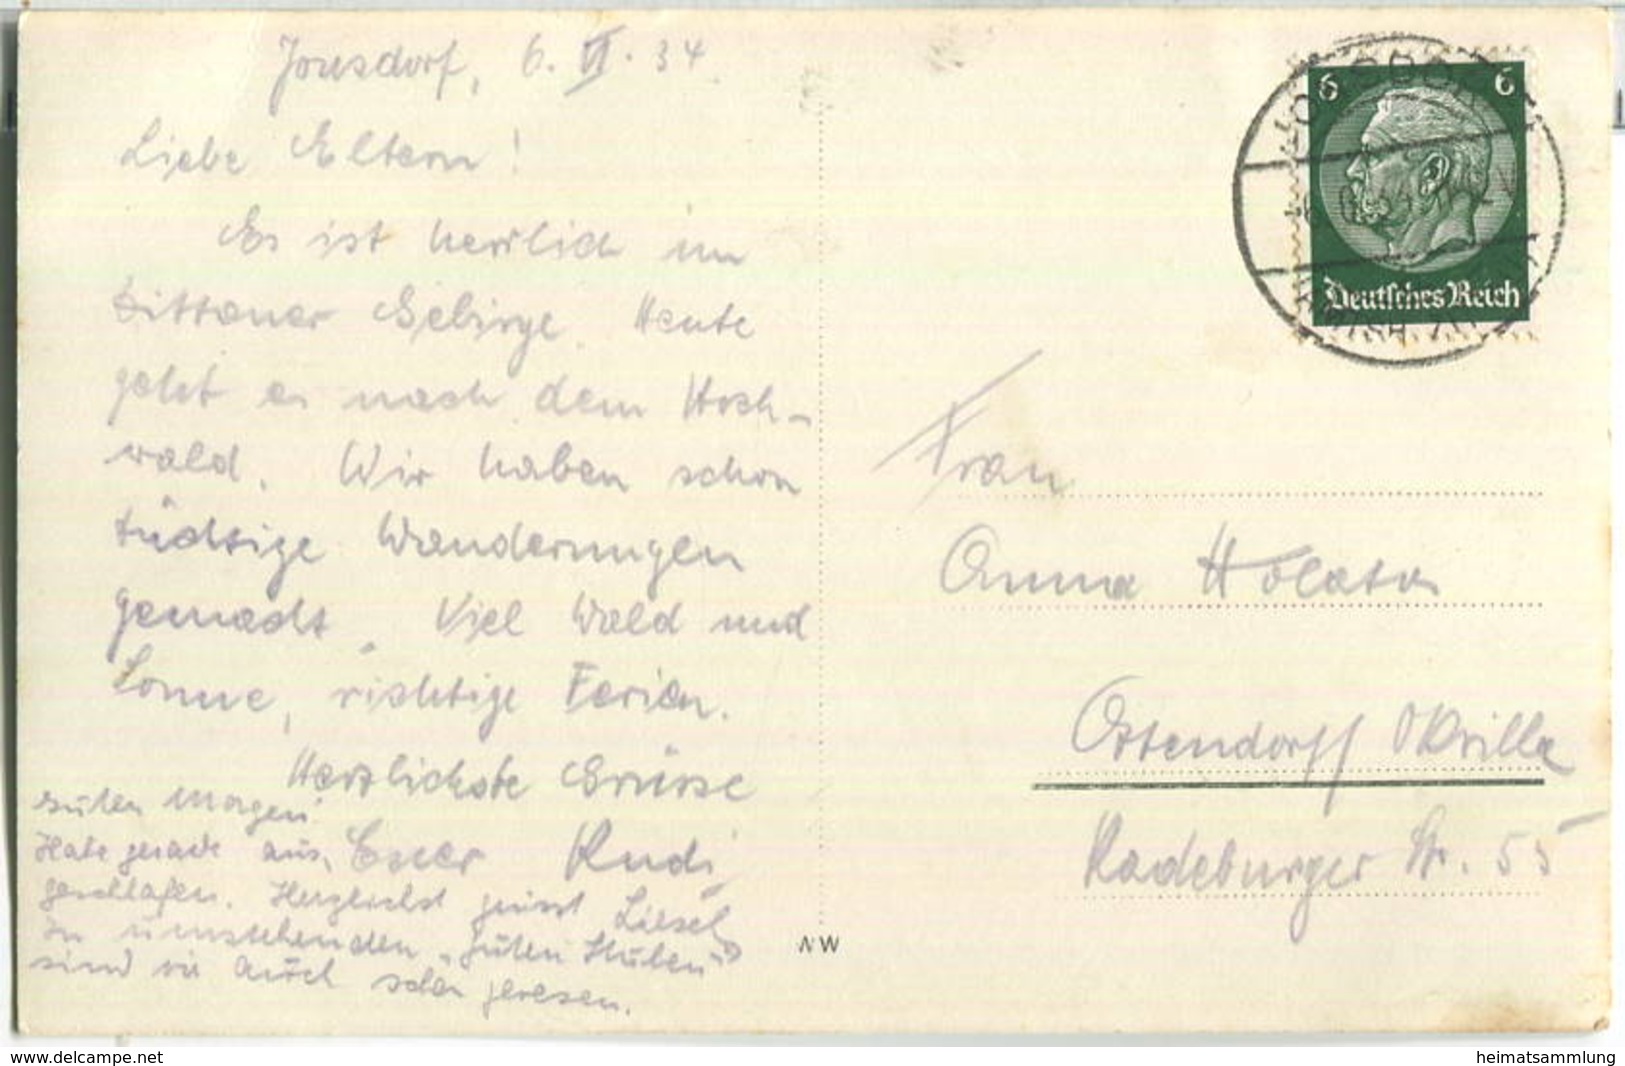 Jonsdorf, 6. VI. 34.
Liebe Eltern!
Es ist herrlich im
Zittauer Gebirge. Heute
geht es nach dem Hoch-
wald. Wir haben schon
tüchtige Wanderungen
gemacht. Viel Wald und
Sonne, richtige Ferien.
Herzlichste Grüsse
Euer Rudi
Guten Morgen!
Habe gerade aus-
geschlafen. Herzlichst grüsst Liesel
In umstehenden „guten Stuben"
sind wir auch schon gewesen.
6 6
Deutsches Reich
Frau
Anna
Ottendorff Okrilla
Radeburger Str. 55
NW
www.delcampe.net
heimatsammlung